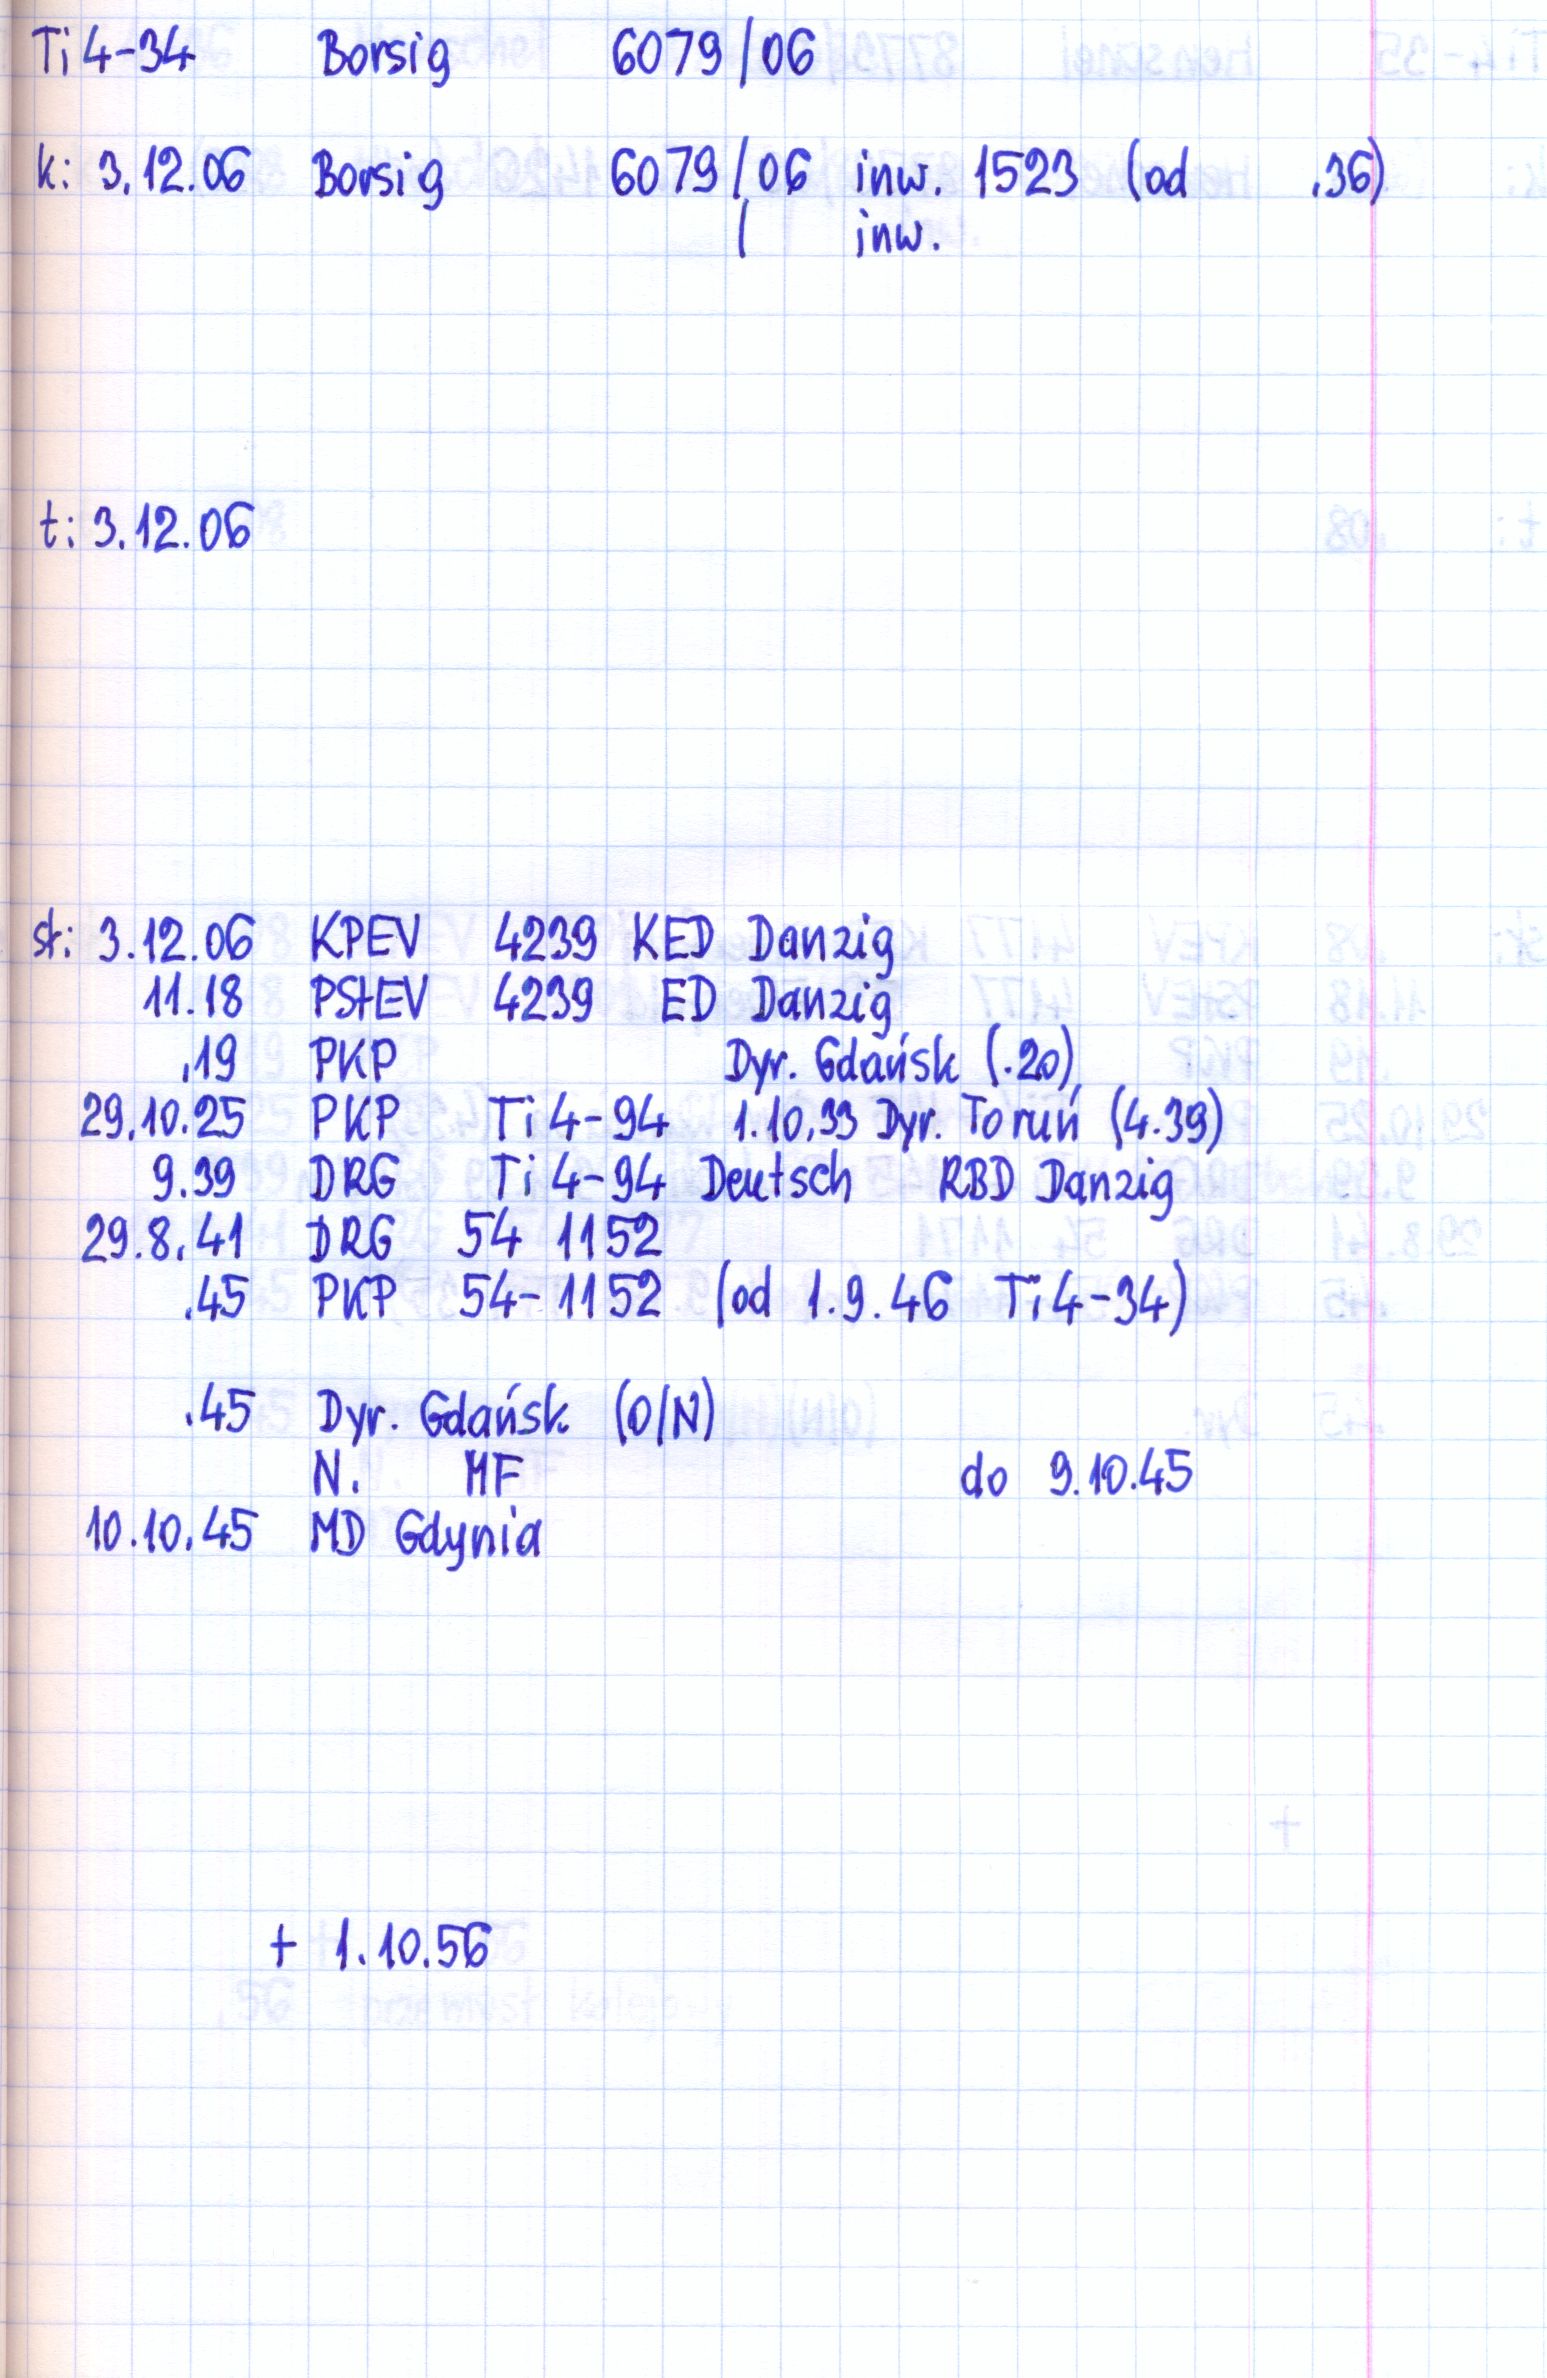 Ti 4-34 Borsig 6079/06
k: 3.12.06 Borsig 6079/06 inw. 1523 (od .36)
/ inw.
t: 3.12.06
st: 3.12.06 KPEV 4239 KED Danzig
11.18 PStEV 4239 ED Danzig
.19 PKP Dyr. Gdańsk (.20)
29.10.25 PKP Ti 4-94 1.10.33 Dyr. Toruń (4.39)
9.39 DRG Ti 4-94 Deutsch RBD Danzig
29.8.41 DRG 54 1152
.45 PKP 54-1152 (od 1.9.46 Ti 4-34)
.45 Dyr. Gdańsk (O/N)
N. MF do 9.10.45
10.10.45 MD Gdynia
+ 1.10.56